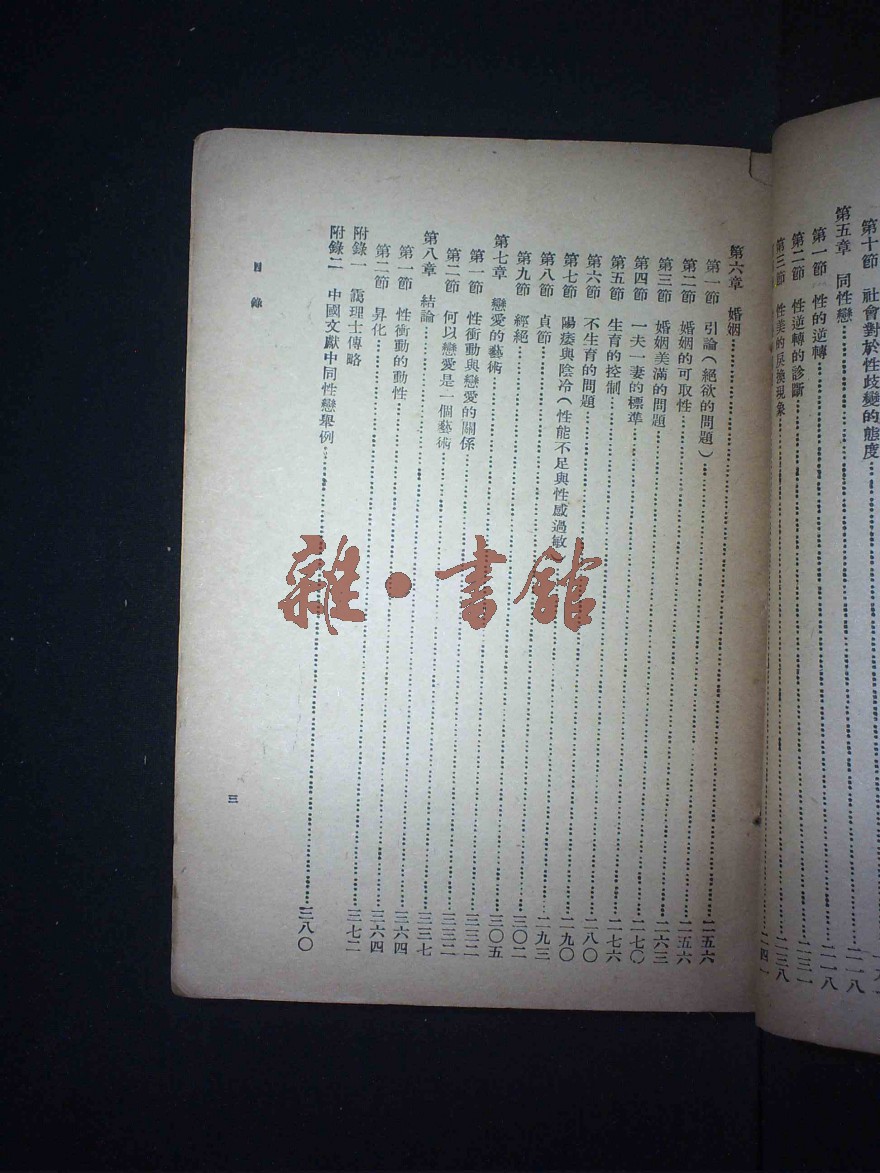 第十節 社會對於性歧變的態度
第五章 同性戀……二一八
第一節 性的逆轉……二一八
第二節 性逆轉的診斷……二三二
第三節 性美的戾換現象……二三八
二四一
第六章 婚姻……二五六
第一節 引論(絕欲的問題)……二五六
第二節 婚姻的可取性……二六三
第三節 婚姻美滿的問題……二七〇
第四節 一夫一妻的標準……二七六
第五節 生育的控制……二八〇
第六節 不生育的問題……二九〇
第七節 陽痿與陰冷(性能不足與性感過敏……二九三
第八節 貞節……三〇二
第九節 經絕……三〇五
第七章 戀愛的藝術……三二二
第一節 性衝動與戀愛的關係……三二二
第二節 何以戀愛是一個藝術……三三七
第八章 結論……三六四
第一節 性衝動的動性……三六四
第二節 昇化……三七二
附錄一 靄理士傳略
附錄二 中國文獻中同性戀舉例……三八〇
目錄
三
雜·書館